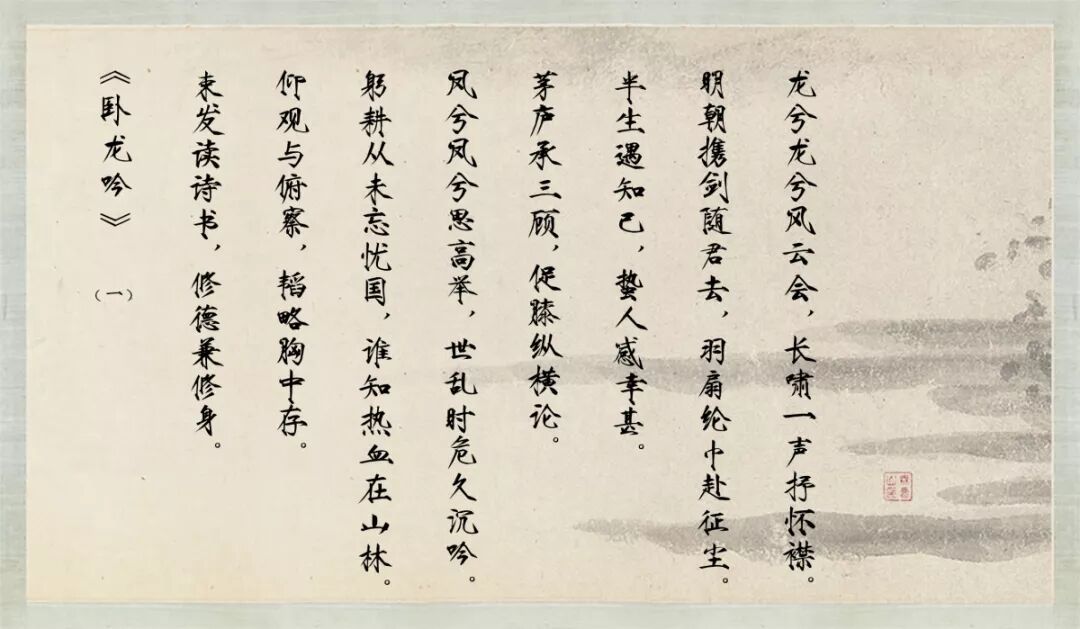 《卧龙吟》 (一)
束发读诗书，修德兼修身。
仰观与俯察，韬略胸中存。
躬耕从未忘忧国，谁知热血在山林。
凤兮凤兮思高举，世乱时危久沉吟。
茅庐承三顾，促膝纵横论。
半生遇知己，蛰人感幸甚。
明朝携剑随君去，羽扇纶巾赴征尘。
龙兮龙兮风云会，长啸一声抒怀襟。